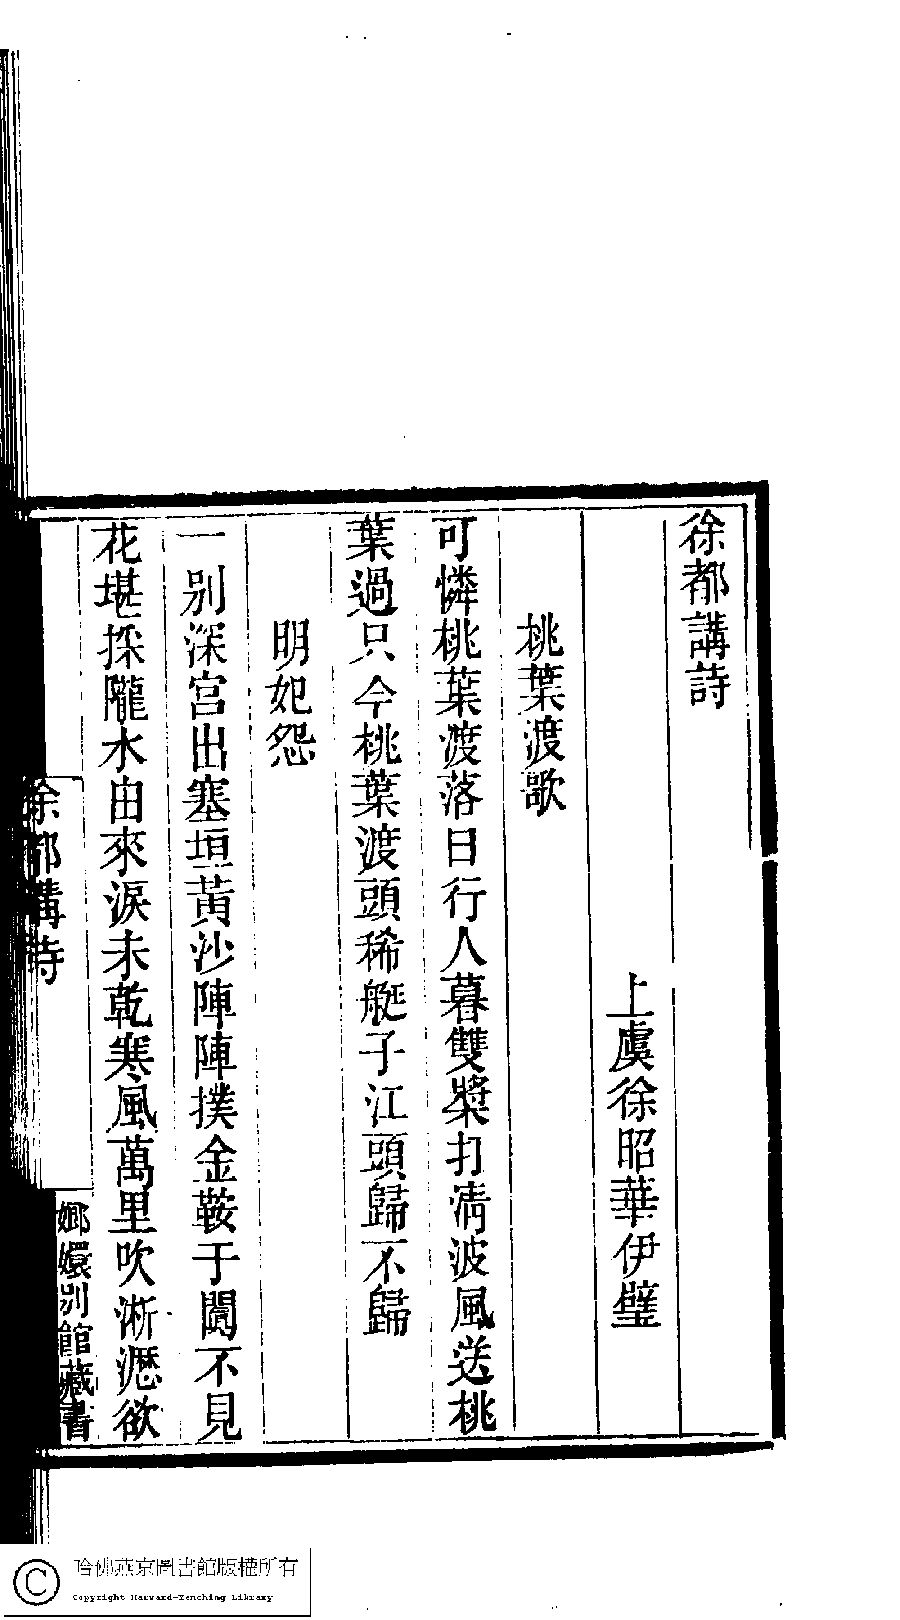 徐都講詩
上虞徐昭華伊璧
桃葉渡歌
可憐桃葉渡落日行人暮雙槳打清波風送桃
葉過只今桃葉渡頭稀艇子江頭歸不歸
明妃怨
一别深宮出塞垣黃沙陣陣撲金鞍于闐不見
花堪採隴水由來淚未乾寒風萬里吹淅瀝欲
徐都講詩
嫏嬛别館藏書
哈佛燕京圖書館版權所有
Copyright Harvard-Yenching Library